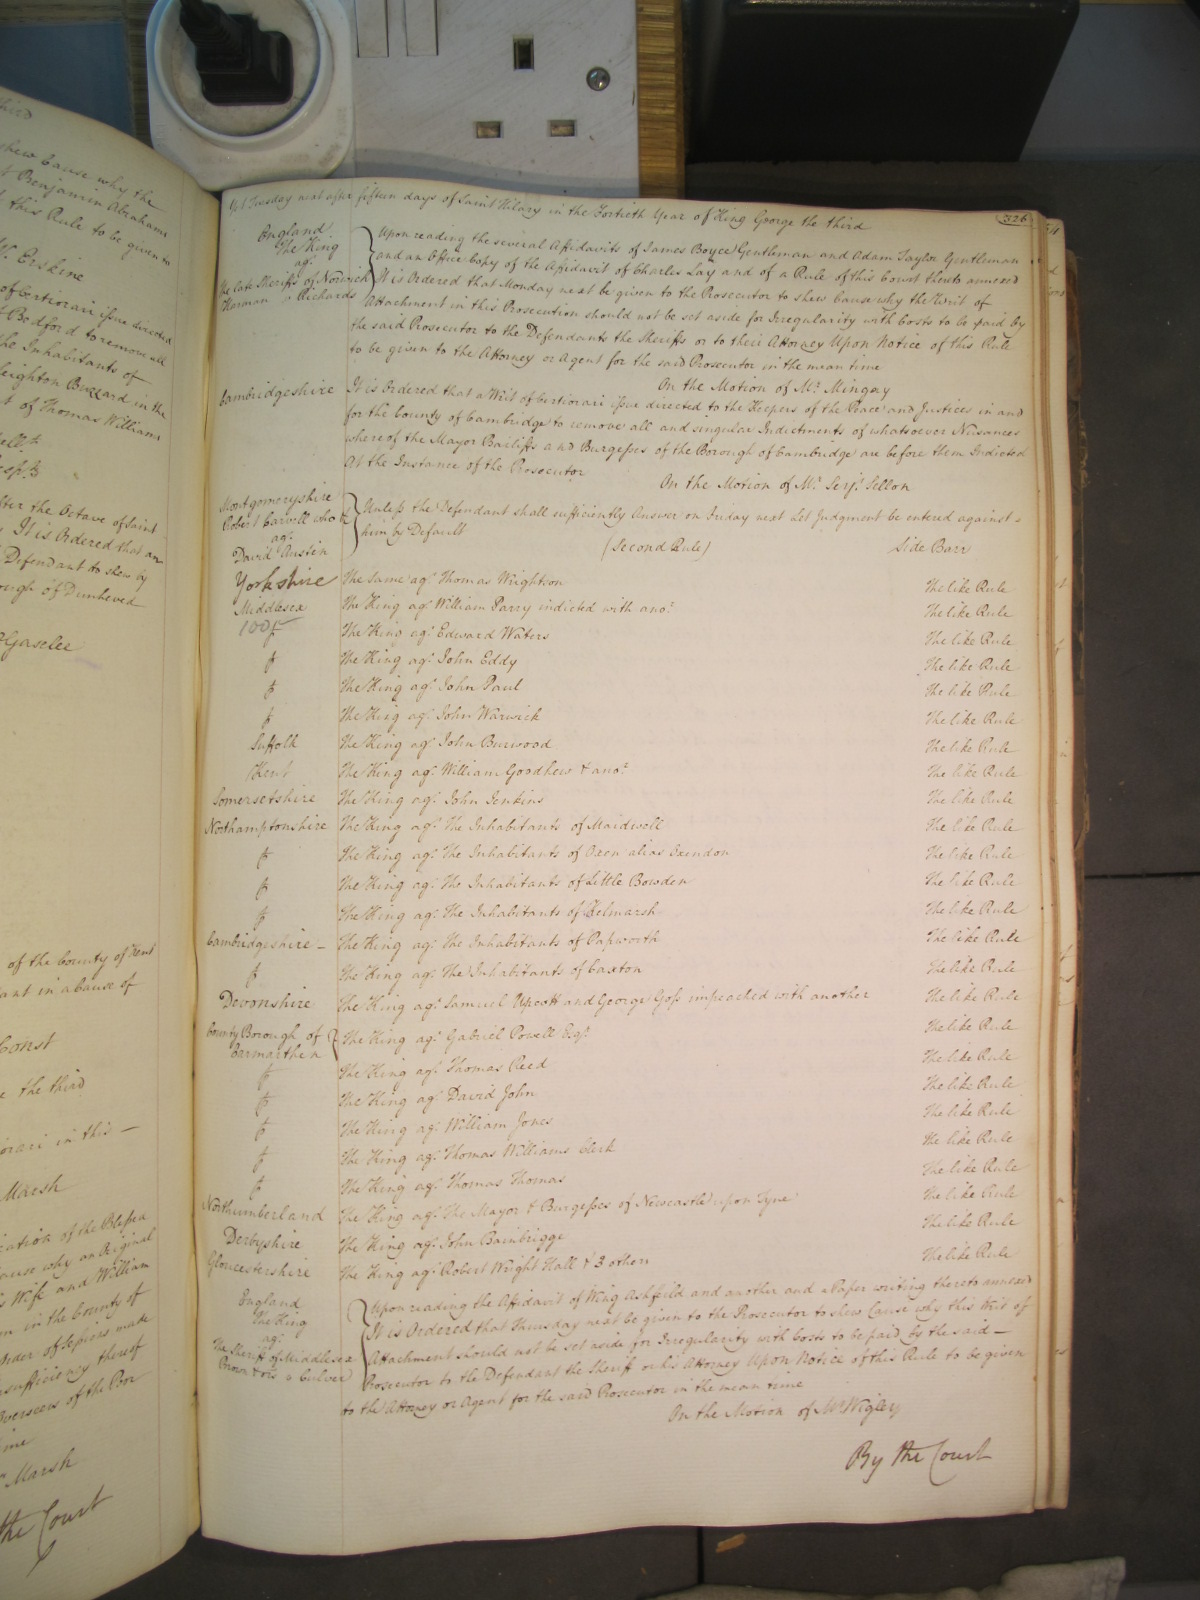 third
shew Cause why the
Benjamin Abrahams
this Rule to be given to
Erskine
of Certiorari issue directed
Bedford to remove all
the Inhabitants of
Leighton Buzzard in the
of Thomas Williams
after the Octave of Saint
It is Ordered that an
Defendant to shew by
Borough of Dunheved
Gaselee
of the County of Kent
in a Cause of
Const
the third
in this —
Marsh
of the Blessed
Cause why an Original
Wife and William
in the County of
Order of Sessions made
Insufficiency thereof
Overseers of the Poor
time
Marsh
the Court
Yet Tuesday next after fifteen days of Saint Hilary in the Fortieth Year of King George the third
326
England
The King
agt
the late Sheriffs of Norwich
Harman v Richards
Upon reading the several Affidavits of James Boyce Gentleman and Adam Taylor Gentleman
and an Office Copy of the Affidavit of Charles Lay and of a Rule of this Court thereto annexed
It is Ordered that Monday next be given to the Prosecutor to shew Cause why the Writ of
Attachment in this Prosecution should not be set aside for Irregularity with Costs to be paid by
the said Prosecutor to the Defendants the Sheriffs or to their Attorney Upon Notice of this Rule
to be given to the Attorney or Agent for the said Prosecutor in the mean time
On the Motion of Mr. Mingay
Cambridgeshire
It is Ordered that a Writ of Certiorari issue directed to the Keepers of the Peace and Justices in and
for the County of Cambridge to remove all and singular Indictments of whatsoever Nusances
whereof the Mayor Bailiffs and Burgesses of the Borough of Cambridge are before them Indicted
At the Instance of the Prosecutor
On the Motion of Mr. Serjt. Sellon
Montgomeryshire
Robert Carvell who &c
agt
David Austin
Unless the Defendant shall sufficiently Answer on Friday next Let Judgment be entered against
him by Default (Second Rule) Side Barr
Yorkshire The same agt. Thomas Wrightson The like Rule
Middlesex The King agt. William Parry indicted with anor. The like Rule
The King agt. Edward Waters The like Rule
The King agt. John Eddy The like Rule
The King agt. John Paul The like Rule
The King agt. John Warwick The like Rule
Suffolk The King agt. John Burwood The like Rule
Kent The King agt. William Goodhew & anor. The like Rule
Somersetshire The King agt. John Jenkins The like Rule
Northamptonshire The King agt. The Inhabitants of Maidwell The like Rule
The King agt. The Inhabitants of Oxen alias Oxendon The like Rule
The King agt. The Inhabitants of Little Bowden The like Rule
The King agt. The Inhabitants of Kelmarsh The like Rule
Cambridgeshire — The King agt. The Inhabitants of Papworth The like Rule
The King agt. The Inhabitants of Caxton The like Rule
Devonshire The King agt. Samuel Upcott and George Goss impeached with another The like Rule
County Borough of
Carmarthen The King agt. Gabriel Powell Esqr. The like Rule
The King agt. Thomas Reed The like Rule
The King agt. David John The like Rule
The King agt. William Jones The like Rule
The King agt. Thomas Williams Clerk The like Rule
The King agt. Thomas Thomas The like Rule
Northumberland The King agt. The Mayor & Burgesses of Newcastle upon Tyne The like Rule
Derbyshire The King agt. John Bainbrigge The like Rule
Gloucestershire The King agt. Robert Wright Hall & 3 others The like Rule
England
The King
agt
The Sheriff of Middlesex
Brown & ors v Culver
Upon reading the Affidavit of Wing Ashfeild and another and a Paper writing thereto annexed
It is Ordered that Thursday next be given to the Prosecutor to shew Cause why this Writ of
Attachment should not be set aside for Irregularity with Costs to be paid by the said —
Prosecutor to the Defendant the Sheriff or his Attorney Upon Notice of this Rule to be given
to the Attorney or Agent for the said Prosecutor in the mean time
On the Motion of Mr Wigley
By the Court